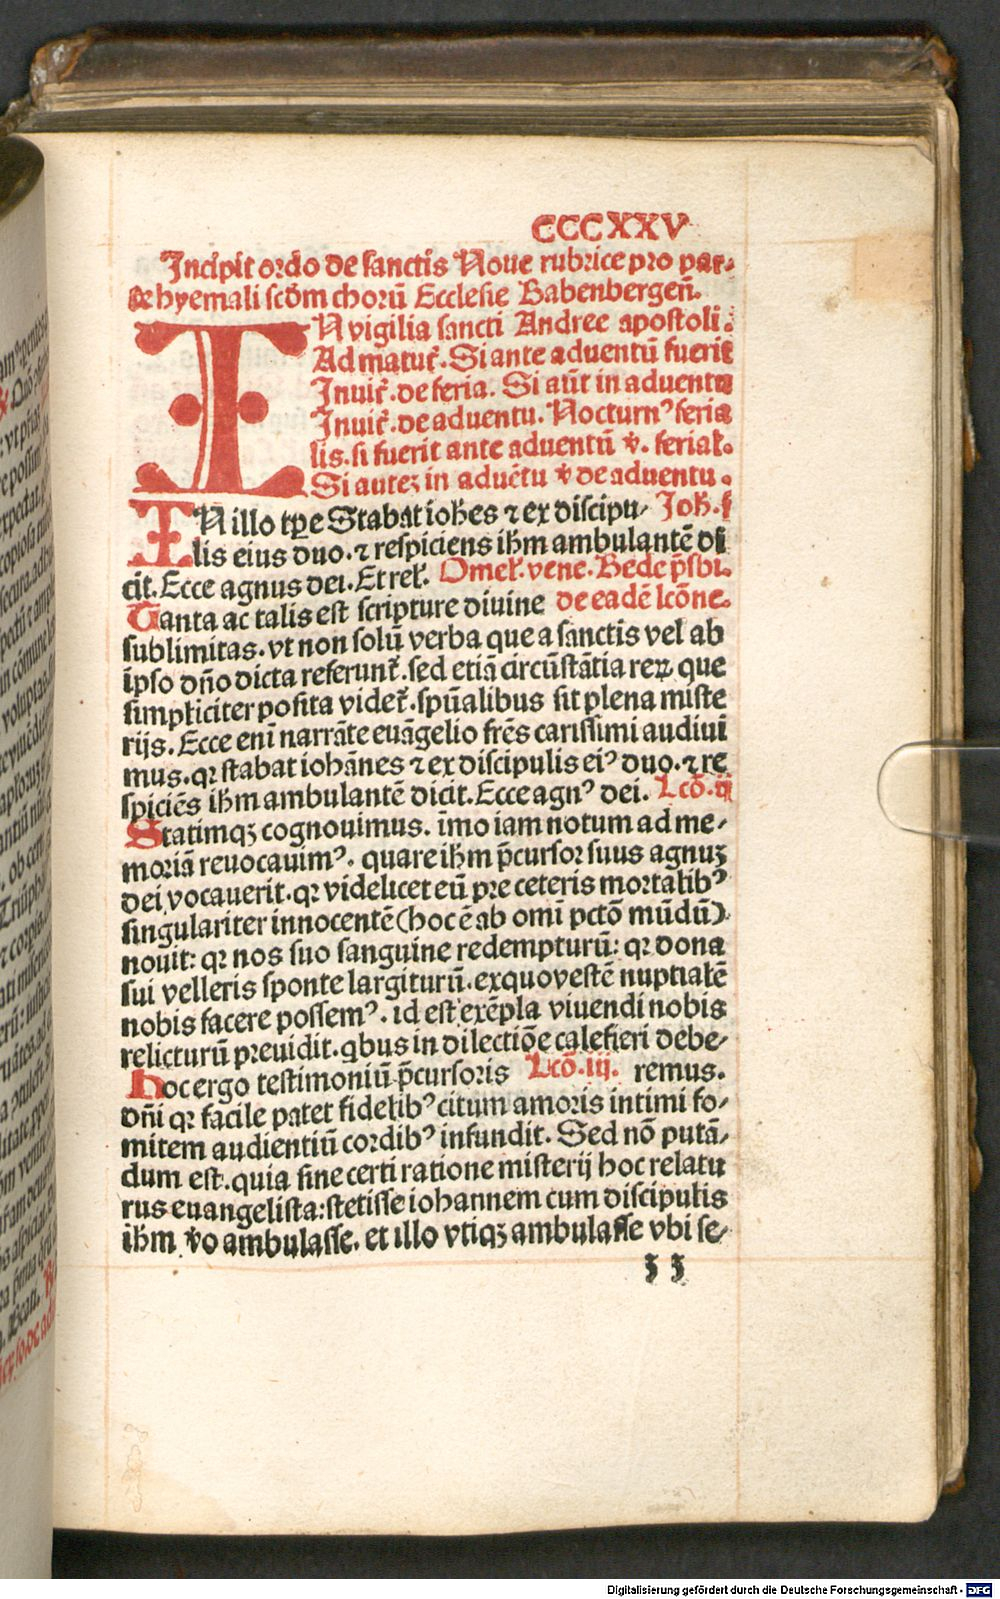 CCCXXV
Incipit ordo de sanctis Noue rubrice pro par⸗
te hyemali scd̄m chorū Ecclesie Babenbergeñ.
IN vigilia sancti Andree apostoli.
Ad matut̄. Si ante aduentū fuerit
Inuit̄. de feria. Si aūt in aduentu
Inuit̄. de aduentu. Nocturnꝰ feria
lis. si fuerit ante aduentū v̄. ferial̄.
Si autez in aduētu v̄ de aduentu.
IN illo tꝑe Stabat ioh̄es ⁊ ex discipu⸗ Joh̄. I
lis eius duo. ⁊ respiciens ih̄m ambulantē di
cit. Ecce agnus dei. Et rel̄. Omel̄. vene. Bede p̄sbi.
Tanta ac talis est scripture diuine de eadē lcōne.
sublimitas. vt non solū verba que a sanctis vel ab
ip̄so dn̄o dicta referunt̄. sed etiā circūstātia reꝝ que
simpliciter posita videt̄. spūalibus sit plena miste
rijs. Ecce eni narrāte euāgelio frēs carissimi audiui
mus. qꝛ stabat iohānes ⁊ ex discipulis eiꝰ duo. ⁊ re
spiciēs ih̄m ambulantē dicit. Ecce agnꝰ dei. Lcō. ij
Statimqꝫ cognouimus. īmo iam notum ad me⸗
moriā reuocauimꝰ. quare ih̄m p̄cursor suus agnuʒ
dei vocauerit. qꝛ videlicet eū pre ceteris mortalibꝰ
singulariter innocentē (hoc ē ab omi pctō mūdū)
nouit: qꝛ nos suo sanguine redempturū: qꝛ dona
sui velleris sponte largiturū. ex quo vestē nuptialē
nobis facere possemꝰ. id est exēpla viuendi nobis
relicturū preuidit. qbus in dilectiōe calefieri debe⸗
Hoc ergo testimoniū p̄cursoris Lcō. iij. remus.
dn̄i qꝛ facile patet fidelibꝰ citum amoris intimi fo⸗
mitem audientiū cordibꝰ infundit. Sed nō putā⸗
dum est. quia sine certi ratione misterij hoc relatu
rus euangelista: stetisse iohannem cum discipulis
ih̄m v̄o ambulasse. et illo vtiqꝫ ambulasse vbi se⸗
ʒ ʒ
Digitalisierung gefördert durch die Deutsche Forschungsgemeinschaft - DFG